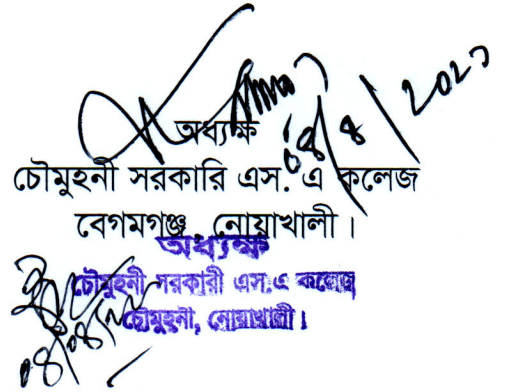 অধ্যক্ষ
চৌমুহনী সরকারি এস. এ কলেজ
বেগমগঞ্জ, নোয়াখালী।
অধ্যক্ষ
চৌমুহনী সরকারী এস.এ কলেজ
চৌমুহনী, নোয়াখালী।